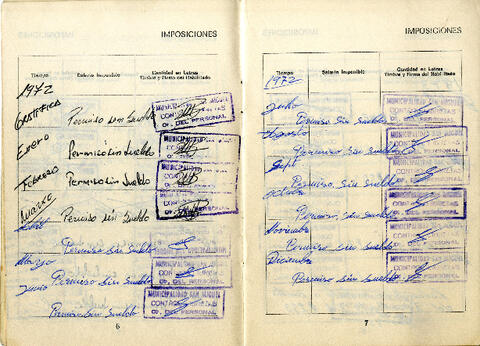 IMPOSICIONES
Tiempo Salario Imponible Cantidad en Letras
Timbre y Firma del Habilitado
1972
Gratifica
Permiso sin Sueldo
CONTABILIDAD
OF. DEL PERSONAL
Enero
Permiso sin Sueldo
MUNICIPALIDAD SAN MIGUEL
OF. DEL PERSONAL
Febrero
Permiso sin Sueldo
MUNICIPALIDAD SAN MIGUEL
OF. DEL PERSONAL
Marzo
Permiso sin Sueldo
MUNICIPALIDAD SAN MIGUEL
Abril
Permiso sin Sueldo
OF. DEL PERSONAL
Mayo
Permiso sin Sueldo
MUNICIPALIDAD SAN MIGUEL
OF. DEL PERSONAL
Junio
Permiso sin Sueldo
MUNICIPALIDAD SAN MIGUEL
OF. DEL PERSONAL
6
IMPOSICIONES
Tiempo Salario Imponible Cantidad en Letras
Timbre y Firma del Habilitado
1972
Julio
Permiso sin Sueldo
MUNICIPALIDAD SAN MIGUEL
OF. DEL PERSONAL
Agosto
Permiso sin Sueldo
MUNICIPALIDAD SAN MIGUEL
OF. DEL PERSONAL
Sept
Permiso sin Sueldo
MUNICIPALIDAD SAN MIGUEL
OF. DEL PERSONAL
Octubre
Permiso sin Sueldo
MUNICIPALIDAD SAN MIGUEL
OF. DEL PERSONAL
Noviembre
Permiso sin Sueldo
MUNICIPALIDAD SAN MIGUEL
OF. DEL PERSONAL
Diciembre
Permiso sin Sueldo
MUNICIPALIDAD SAN MIGUEL
OF. DEL PERSONAL
7